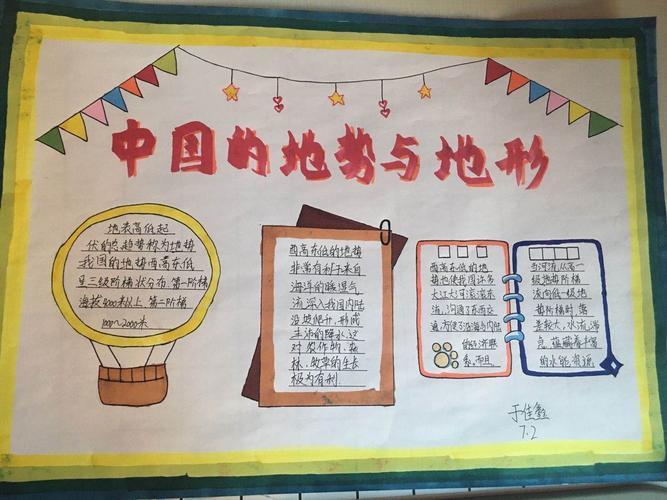 中国的地势与地形
地表高低起
伏的总趋势称为地势
我国的地势西高东低
呈三级阶梯状分布.第一阶梯
海拔4000米以上.第二阶梯
1000~2000米
西高东低的地势
非常有利于来自
海洋的暖湿气
流深入我国内陆
沿坡爬升,形成
生活的降水,这
对农作物、森
林、牧草的生长
极为有利.
西高东低的地
势也使我国许多
大江大河滚滚东
流,沟通了东西交
通,方便了沿海与内陆
的经济联
系.而且
当河流从高一
级地势阶梯
流向低一级地
势阶梯时,落
差较大,水流湍
急,蕴藏着丰富
的水能资源
于佳鑫
7.2